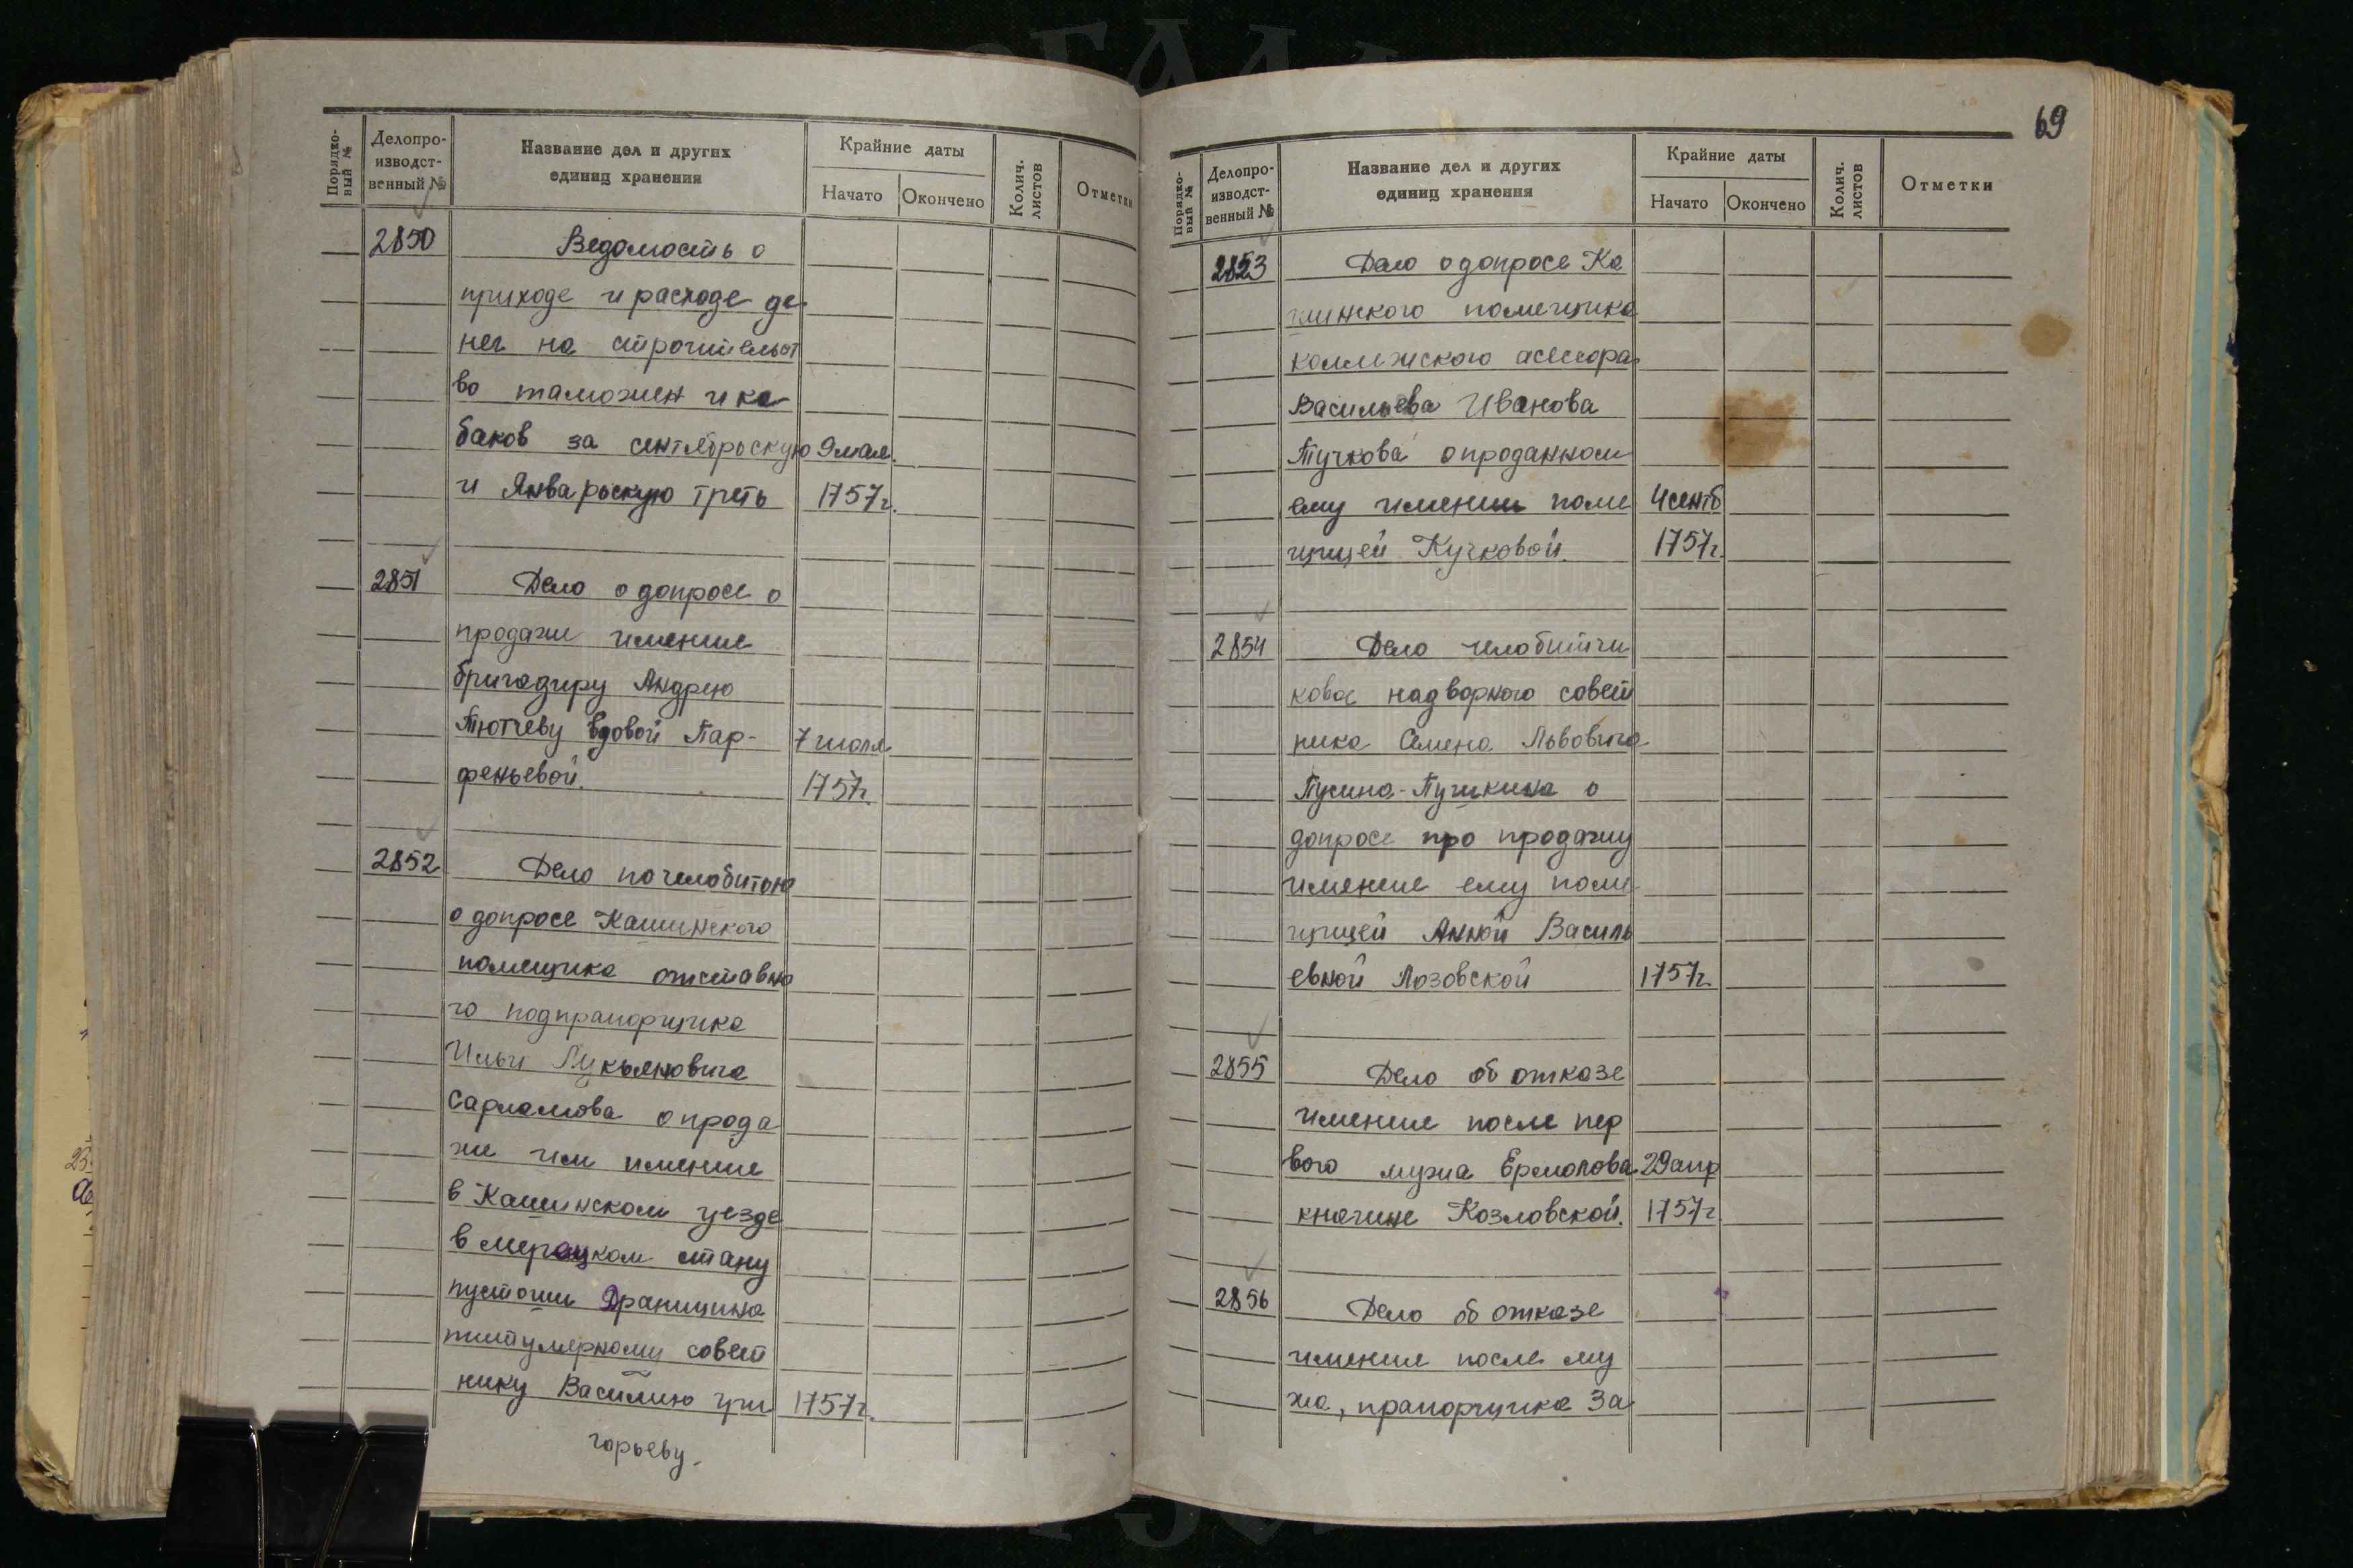 Порядко-
вый №
Делопро-
изводст-
венный №
Название дел и других
единиц хранения
Крайние даты
Начато
Окончено
Колич.
листов
Отметки
2850
Ведомость о
приходе и расходе де
нег на строительст
во таможен и ка
баков за сентябрьскую 9 мая.
и Январьскую треть 1757г.
2851
Дело о допросе о
продажи имение
бригадиру Андрею
Тютчеву вдовой Пар- 7 июля
феньевой. 1757г.
2852
Дело по челобитью
о допросе Кашинского
помещика отставно
го подпрапорщика
Ильи Лукьяновича
Сарламова о прода
же им имение
в Кашинском уезде
в мерецком стану
пустоши Драницина
титулярному совет
нику Василию гри 1757г.
горьеву.
69
Порядко-
вый №
Делопро-
изводст-
венный №
Название дел и других
единиц хранения
Крайние даты
Начато
Окончено
Колич.
листов
Отметки
2853
Дело о допросе Ка
шинского помещика
коллежского асессора
Васильева Иванова
Тучкова о проданном
ему имении поме 4 сентб
щицей Кучковой. 1757г.
2854
Дело челобитчи
ковое надворного совет
ника Семена Львовича
Мусина-Пушкина о
допросе про продажу
имение ему поме
щицей Анной Василь
евной Лозовской 1757г.
2855
Дело об отказе
имение после пер
вого мужа Ермолова 29 апр
княгине Козловской. 1757г
2856
Дело об отказе
имение после му
жа, прапорщика За